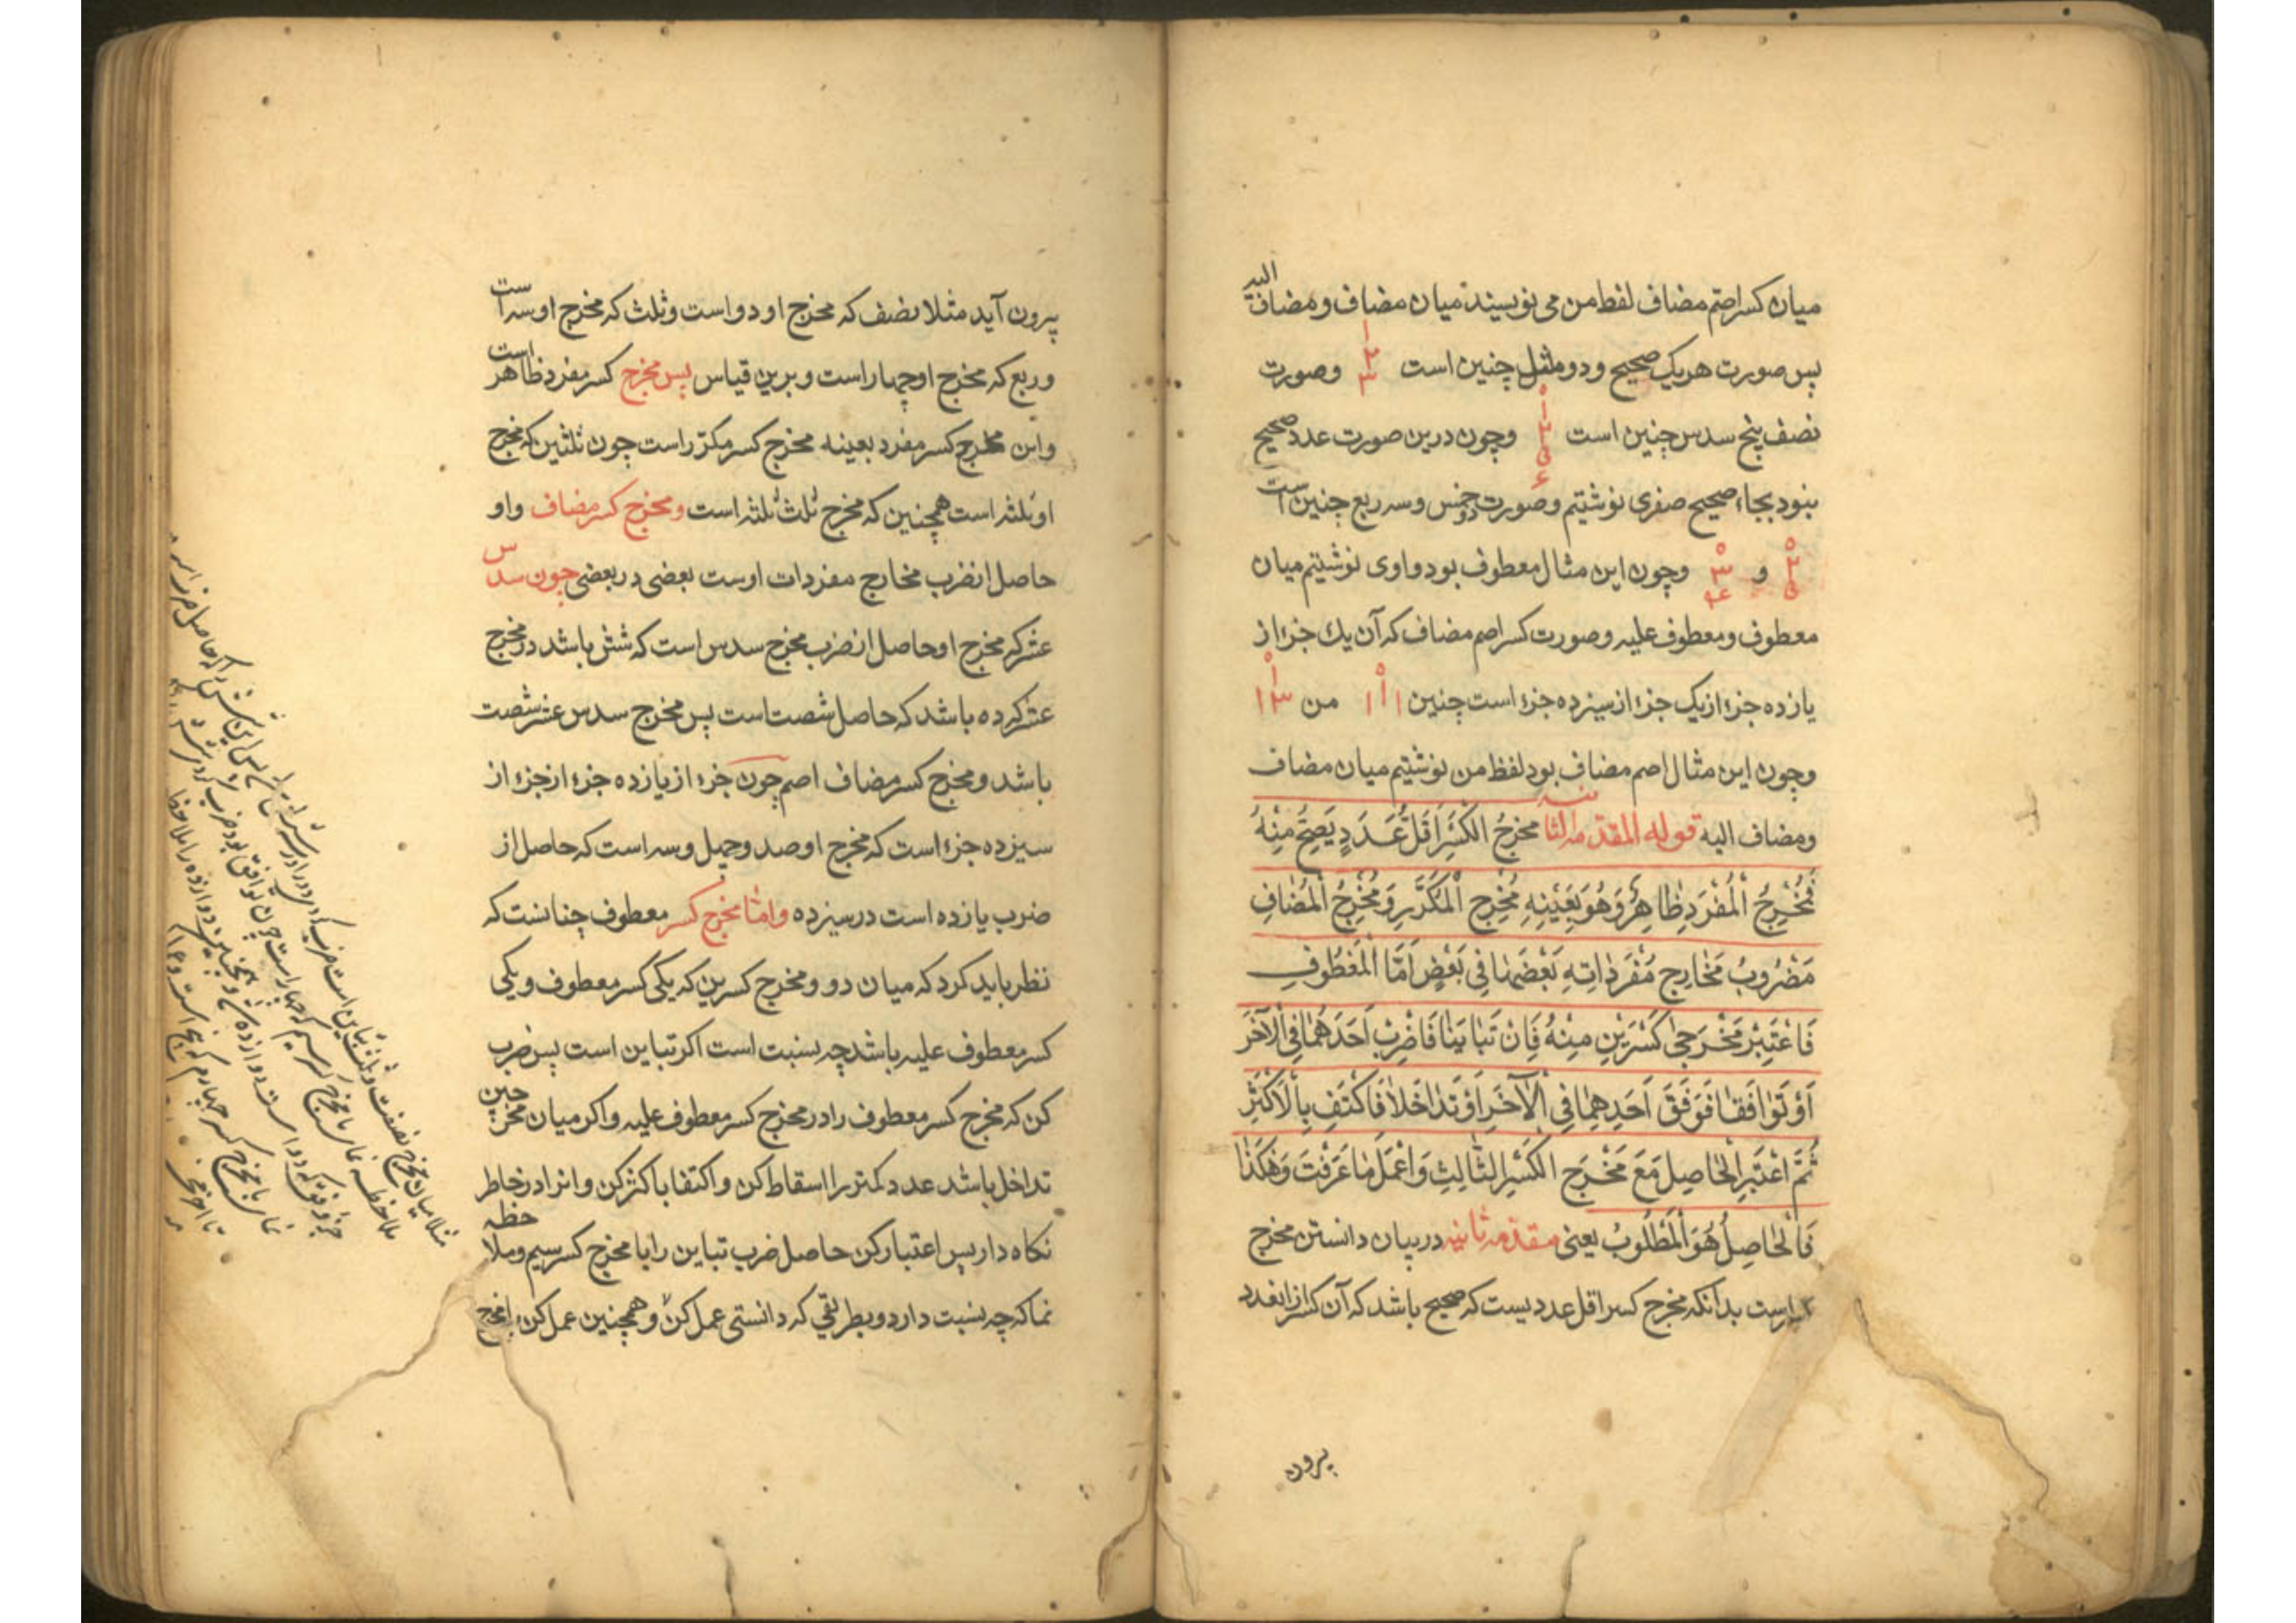 میان کسر اصم مضاف لفظ من می نویسند میان مضاف و مضاف الیه
پس صورت هر یک صحیح و دو ثلث چنین است ۱ ۲ ۳ وصورت
نصف پنج سدس چنین است وچون درین صورت عدد صحیح
نبود بجاء صحیح صفری نوشتیم وصورت دو خمس وسه ربع چنین است
و وچون این مثال معطوف بود واوی نوشتیم میان
معطوف ومعطوف علیه وصورت کسر اصم مضاف که آن یك جزء از
یازده جزء از یک جزء از سیزده جزء است چنین من
وچون این مثال اصم مضاف بود لفظ من نوشتیم میان مضاف
ومضاف الیه قوله المقدمه الثانیه مخرجُ الکَسْرِ اَقَلُّ عَدَدٍ یَصِحُّ مِنْهُ
فَمُخْرِجُ الْمُفْرَدِ ظٰاهِرٌ وَهُوَ بِعَیْنِهِ مُخْرِج الْمُکَرَّرِ وَمُخْرِجُ الْمُضٰافِ
مَضْرُوبُ مَخٰارِجِ مُفْرَدٰاتِهِ بَعْضهٰا فِی بَعْضٍ اَمَّا الْمَعْطُوفِ
فَاعْتَبِرْ مَخْرَجَیْ کَسْرَیْنِ مِنْهُ فَاِنْ تَبٰایَنٰا فَاضْرِبْ اَحَدَهُمٰا فِی الْآخَرَ
اَوْ تَوٰافَقٰا فَوَفَقَ اَحَدِهِمٰا فِی الْآخَرِ اَوْ تَدٰاخَلاٰ فَاکْتَفِ بِالْاَکْثَرِ
ثُمَّ اعْتَبِرِ الْحٰاصِلَ مَعَ مَخْرَجِ الکَسْرِ الثّٰالِثِ وَاعْمَلْ مٰا عَرَفْتَ وَهٰکَذٰا
فَالْحٰاصِلُ هُوَ الْمَطْلُوبُ یعنی مقدمه ثانیه در بیان دانستن مخرج
کسرست بدانکه مخرج کسر اقل عددیست که صحیح باشد که آن کسر از انعدد
بیرون
بیرون آید مثلا نصف که مخرج او دو است وثلث که مخرج او سه است
وربع که مخرج او چهار است و برین قیاس پس مخرج کسر مفرد ظاهر است
واین مخرج کسر مفرد بعینه مخرج کسر مکرّر است چون ثلثین که مخرج
او ثلثه است همچنین که مخرج ثلث ثلثه است ومخرج کسر مضاف واو
حاصل از ضرب مخارج مفردات اوست بعضی در بعضی چون سدس
عشر که مخرج او حاصل از ضرب مخرج سدس است که شش باشد در مخرج
عشر که ده باشد که حاصل شصت است پس مخرج سدس عشر شصت
باشد ومخرج کسر مضاف اصم چون جزء از یازده جزء از جزء از
سیزده جزء است که مخرج او صد وچهل وسه است که حاصل از
ضرب یازده است در سیزده وامّا مخرج کسر معطوف چنانست که
نظر باید کرد که میان دو ومخرج کسرین که یکی کسر معطوف ویکی
کسر معطوف علیه باشد چه نسبت است اکر تباین است پس ضرب
کن که مخرج کسر معطوف را در مخرج کسر معطوف علیه واکر میان مخرجین
تداخل باشد عدد کمتر را اسقاط کن و اکتفا باکثر کن وانرا در خاطر
نکاه دار پس اعتبار کن حاصل ضرب تباین را با مخرج کسر سیم وملاحظه
نما که چه نسبت دارد وبطریقی که دانستی عمل کن وهمچنین عمل کن با مخرج
مثلا میان مخرج نصف وثلث تباین است
ملاحظه نما با مخرج کسر سیم که چهار است چون توافق بود